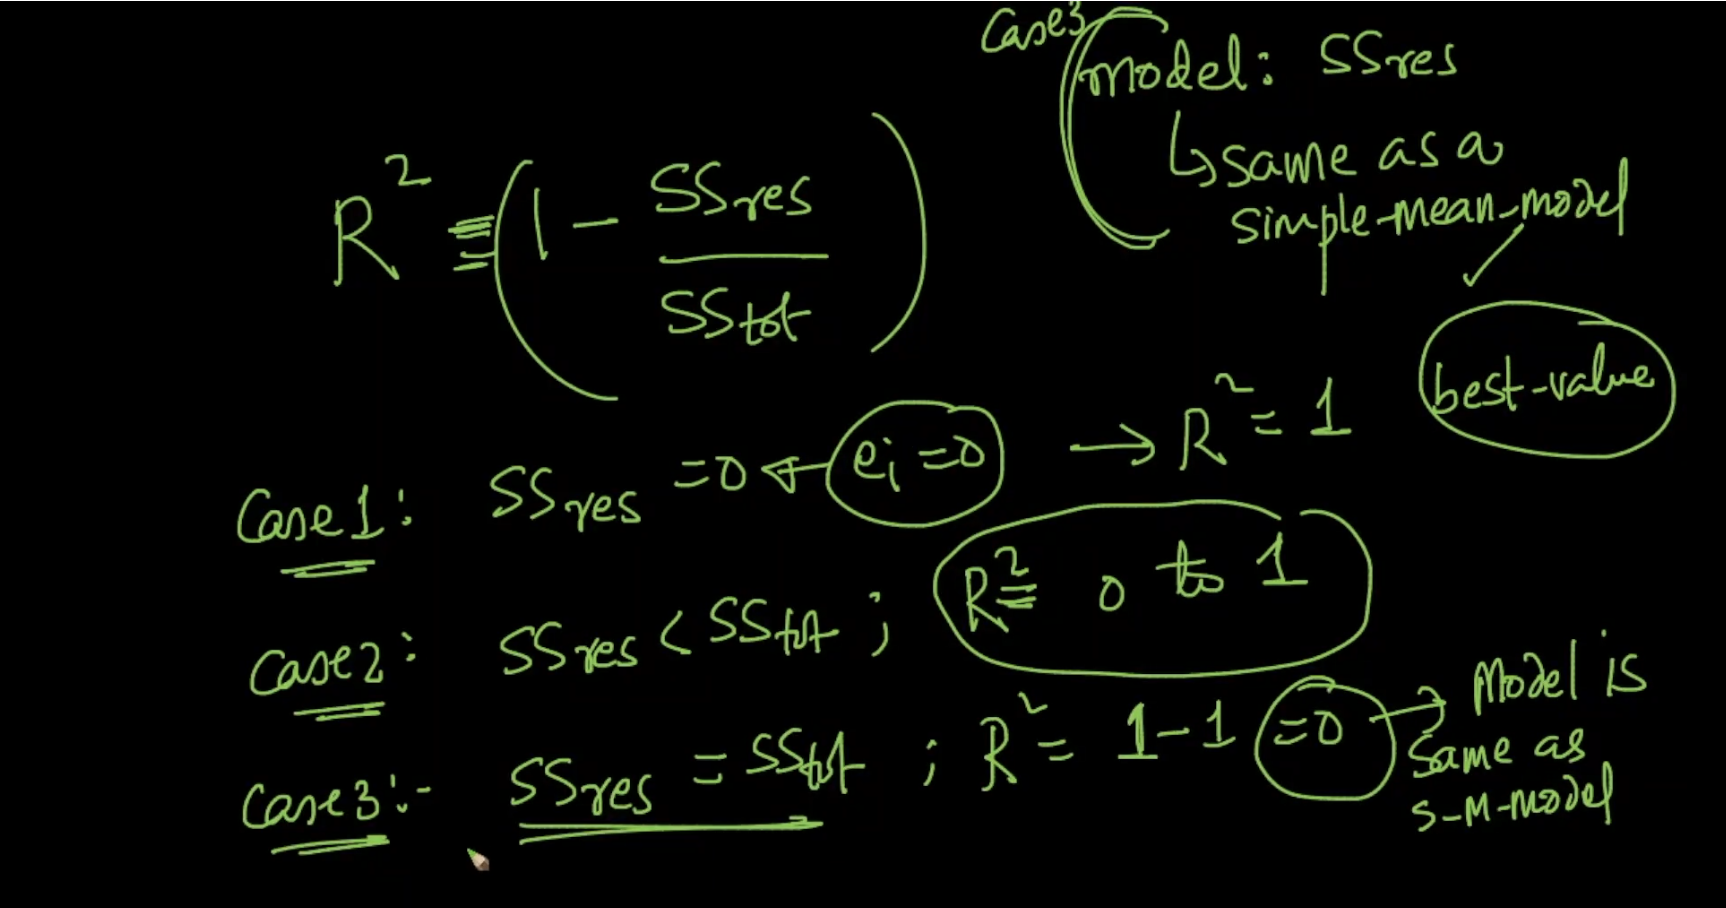 Case3
model: SSres
↳ same as a
simple-mean-model
R² ≡ (1 - SSres / SStot)
best-value
Case1: SSres =0 ← ei=0 → R²= 1
Case2: SSres < SStot ; R²= 0 to 1
Case3:- SSres = SStot ; R²= 1-1 =0 → Model is
same as
S-M-model